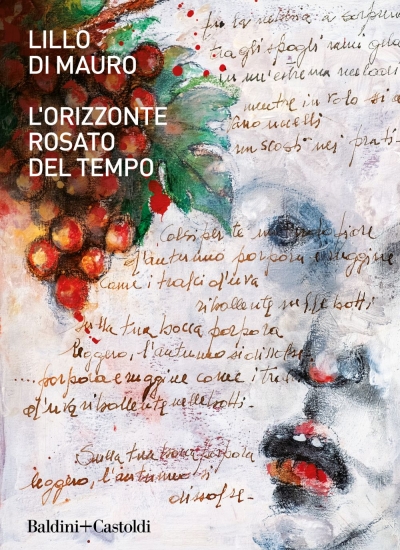 LILLO
DI MAURO
L'ORIZZONTE
ROSATO
DEL TEMPO
la nebbia a sorprend
tra gli spogli rami
in un'estrema
mentre in volo si
uccelli
nei prati-
Colsi per te
d'autunno porpora e ruggine
Come i tralci d'uva
ribollente nelle botti
Sulla tua bocca porpora
leggero, l'autunno si dissolve
.... porpora e ruggine come i tra
d'uva ribollente nelle botti-
Sulla tua bocca porpora
leggero, l'autunno si
dissolve-
Baldini+Castoldi